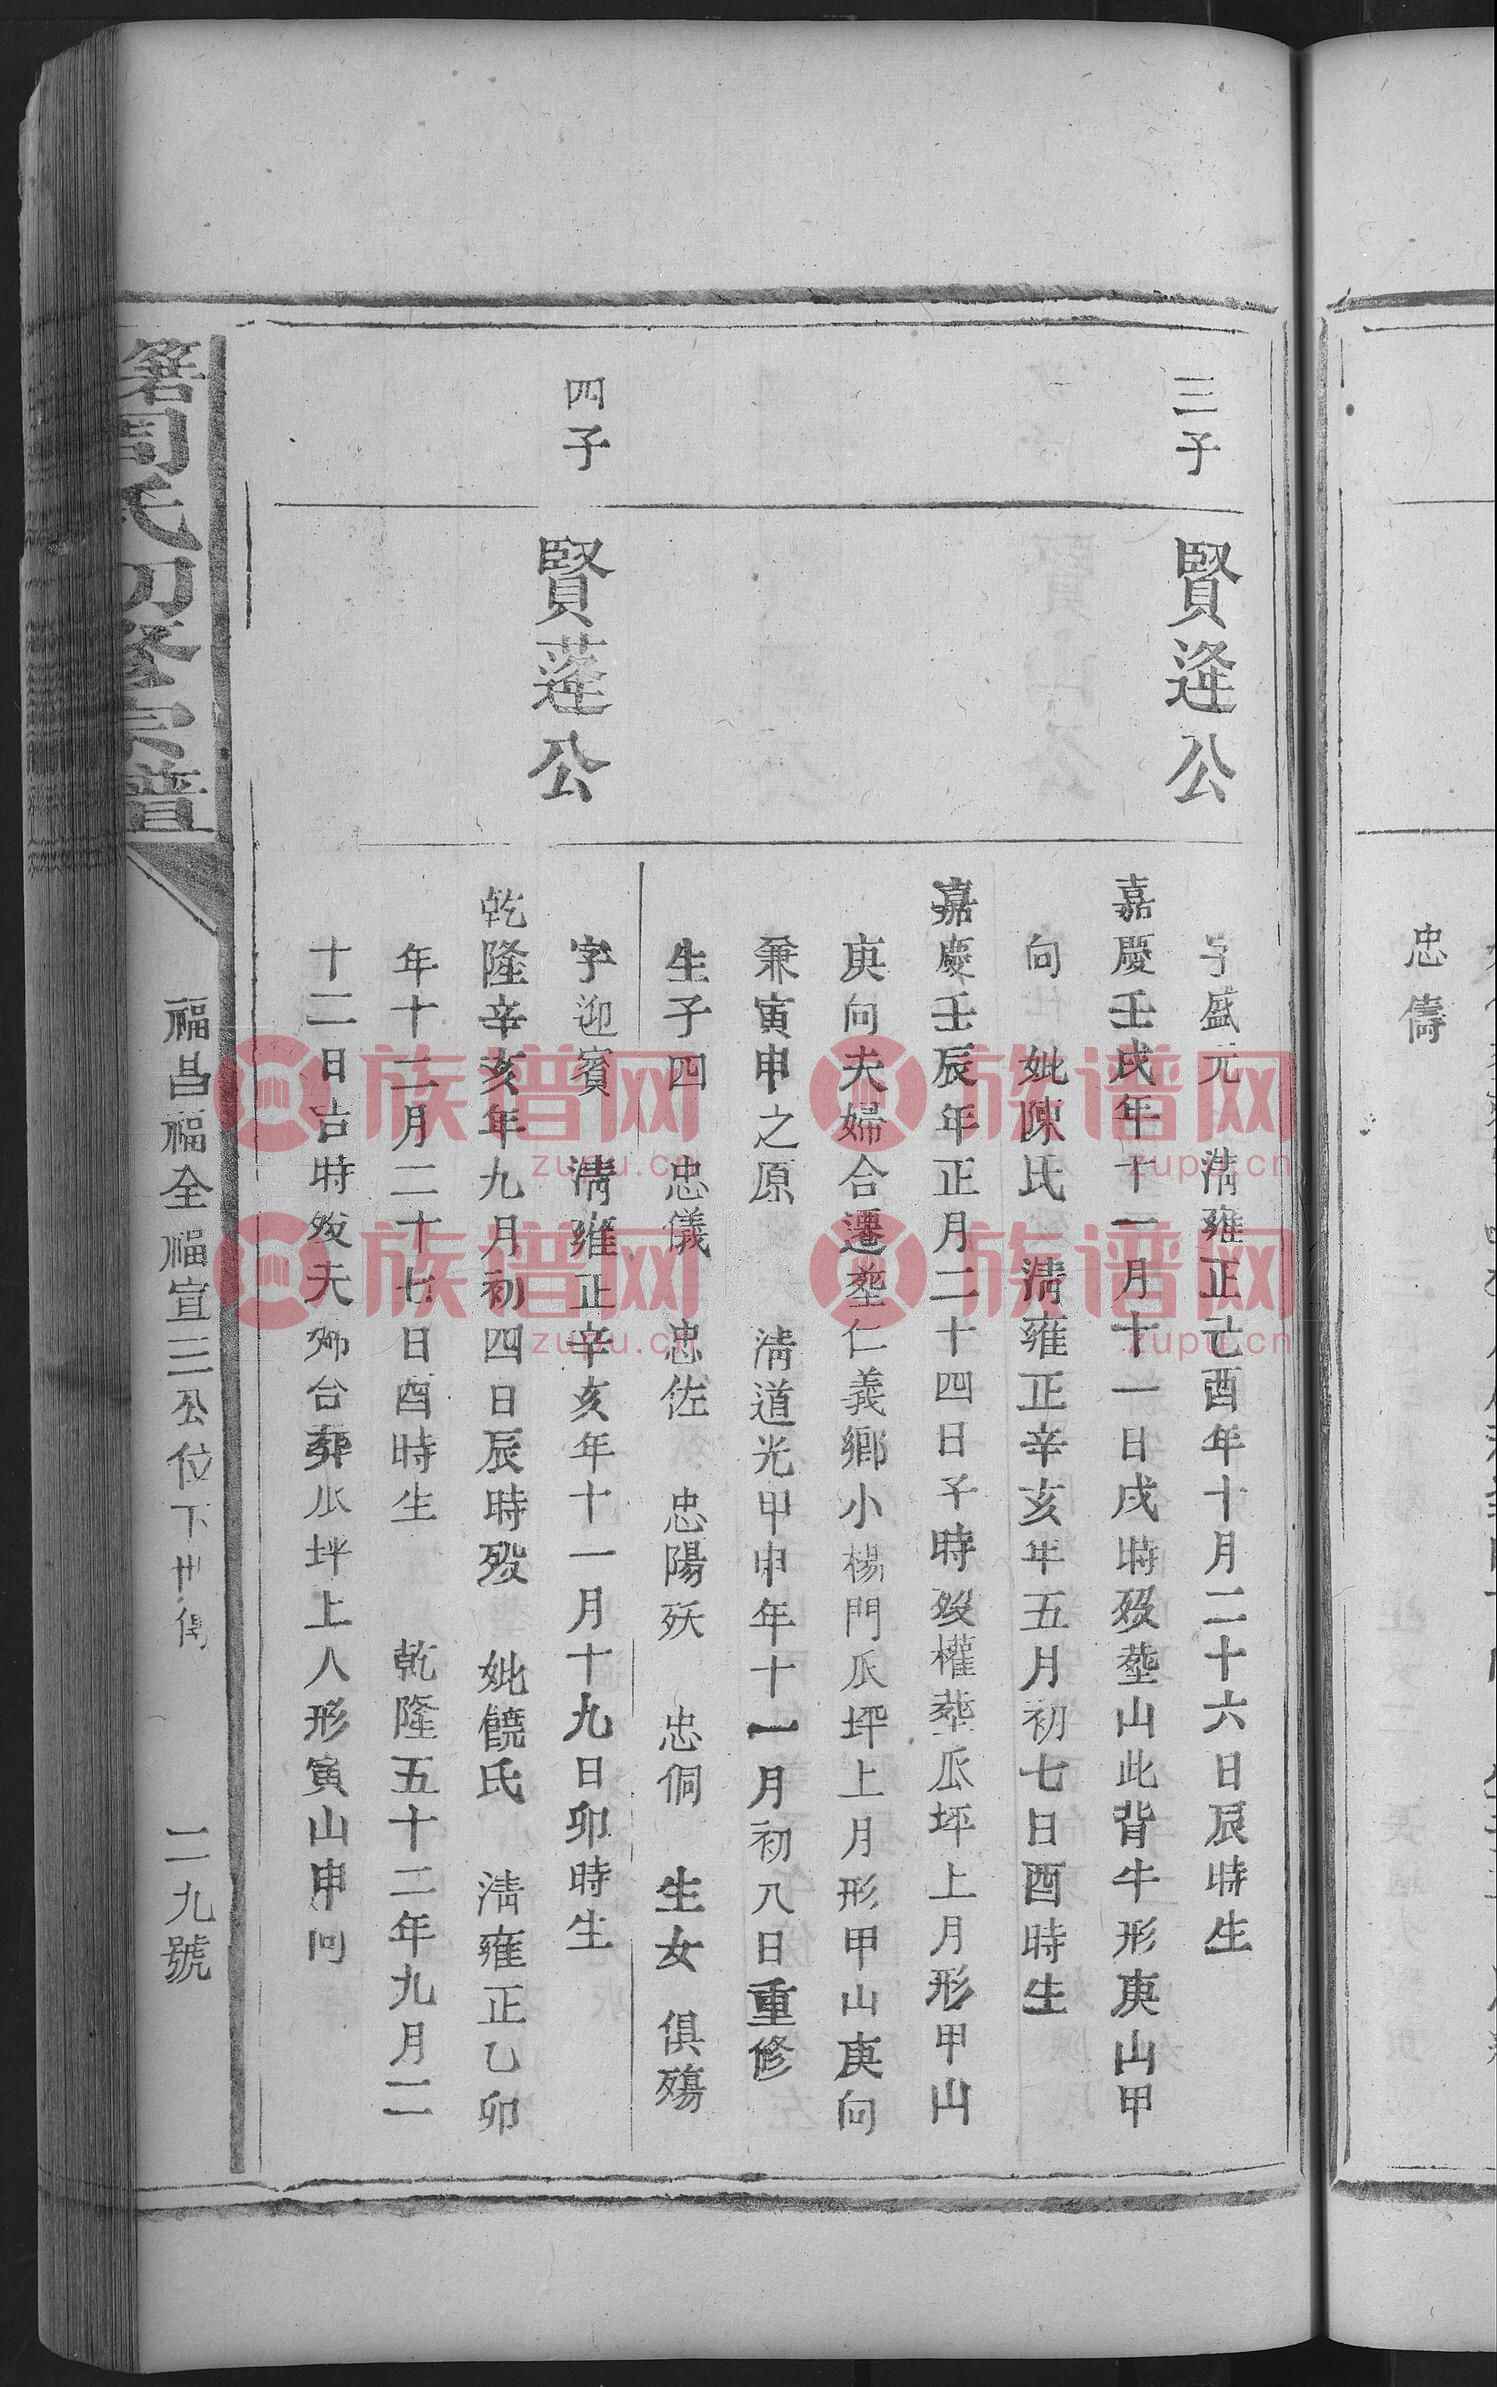 忠儔
三子
賢逄公
字盛元　清雍正己酉年十月二十六日辰時生
嘉慶壬戌年十一月十一日戌時歿塟山此背牛形庚山甲
向　妣陳氏　清雍正辛亥年五月初七日酉時生
嘉慶壬辰年正月二十四日子時歿權塟瓜坪上月形甲山
庚向夫婦合遷塟仁義鄉小楊門瓜坪上月形甲山庚向
兼寅申之原　　清道光甲申年十一月初八日重修
生子四　忠儀　忠佐　忠陽殀　忠侗　生女　俱殤
四子
賢蓬公
字迎賓　清雍正辛亥年十一月十九日卯時生
乾隆辛亥年九月初四日辰時歿　妣饒氏　清雍正乙卯
年十二月二十七日酉時生　　乾隆五十二年九月二
十二日吉時歿夫婦合葬瓜坪上人形寅山申向
周氏初修宗譜
福昌福全福宣三公位下世傳
二九號
族谱网
zupu.cn
族谱网
zupu.cn
族谱网
zupu.cn
族谱网
zupu.cn